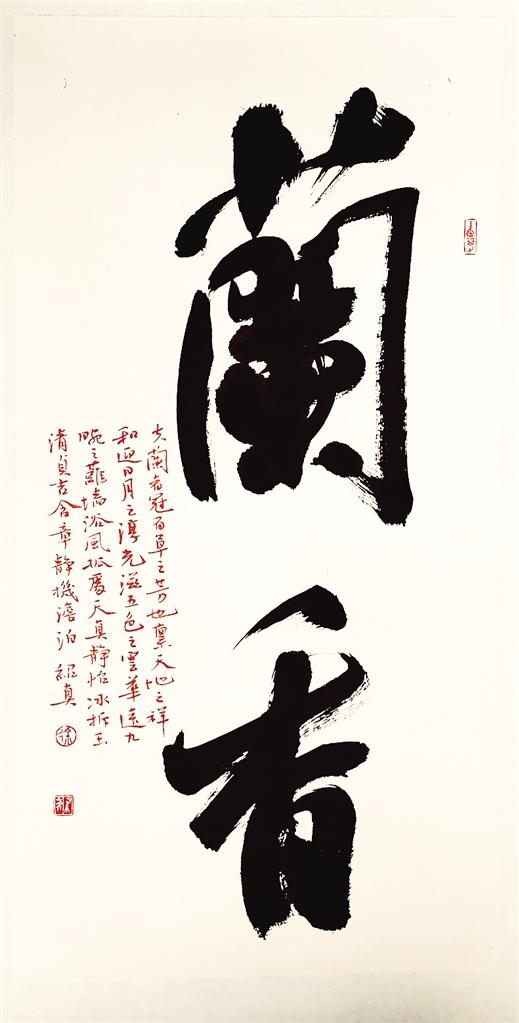 蘭香
夫蘭者冠百草之芳也稟天地之祥
和迎日月之淳光滋五色之雲華遠九
畹之蘿墻浴風孤處天真靜怡冰拆玉
清貞吉含章靜機澹泊 紹真
徐